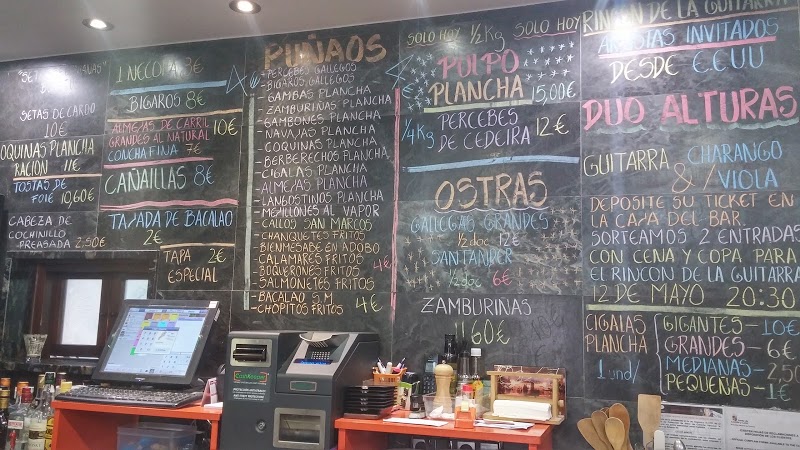 SETAS DE CARDO
10€
COQUINAS PLANCHA
RACION 11€
TOSTAS DE
FOIE 10,60€
CABEZA DE
COCHINILLO
PREASADA 2,50€
1 NECORA 8€
BIGAROS 8€
ALMEJAS DE CARRIL
GRANDES AL NATURAL 10€
CONCHA FINA 7€
CAÑAILLAS 8€
TAJADA DE BACALAO
2€
TAPA 2€
ESPECIAL
PUÑAOS
- PERCEBES GALLEGOS
- BIGAROS GALLEGOS
- GAMBAS PLANCHA
- ZAMBURIÑAS PLANCHA
- GAMBONES PLANCHA
- NAVAJAS PLANCHA
- COQUINAS PLANCHA
- BERBERECHOS PLANCHA
- CIGALAS PLANCHA
- ALMEJAS PLANCHA
- LANGOSTINOS PLANCHA
- MEJILLONES AL VAPOR
- CALLOS SAN MARCOS
- CHANQUETES FRITOS
- BIENMESABE EN ADOBO
- CALAMARES FRITOS 4€
- BOQUERONES FRITOS
- SALMONETES FRITOS
- BACALAO S.M 4€
- CHOPITOS FRITOS
4€
4€
SOLO HOY 1/2 Kg SOLO HOY
PULPO
PLANCHA 15,00€
1/4 Kg PERCEBES
DE CEDEIRA 12€
OSTRAS
GALLEGAS GRANDES
1/2 doc 12€
SANTANDER
1/2 doc 6€
ZAMBURIÑAS
1'60€
RINCON DE LA GUITARRA
ARTISTAS INVITADOS
DESDE E.E.U.U
DUO ALTURAS
GUITARRA & CHARANGO
/ VIOLA
DEPOSITE SU TICKET EN
LA CAJA DEL BAR.
SORTEAMOS 2 ENTRADAS
CON CENA Y COPA PARA
EL RINCON DE LA GUITARRA
12 DE MAYO 20:30
CIGALAS
PLANCHA
1 und/
GIGANTES - 10€
GRANDES - 6€
MEDIANAS - 2,50
PEQUEÑAS - 1€